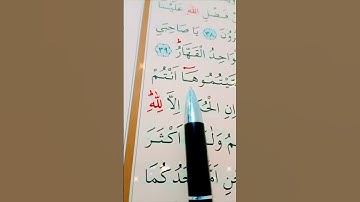 فَضْلِ اللهِ عَلَيْنَا
رُونَ ﴿٣٨﴾ يَا صَاحِبَيِ
وَاحِدُ الْقَهَّارُ ﴿٣٩﴾
مَّيْتُمُوهَآ اَنْتُمْ
اِنِ الْحُ اِلَّا لِلّٰهِ
مُ وَلٰ اَكْثَرَ
جْنِ اَمَّ حَدُكُمَا